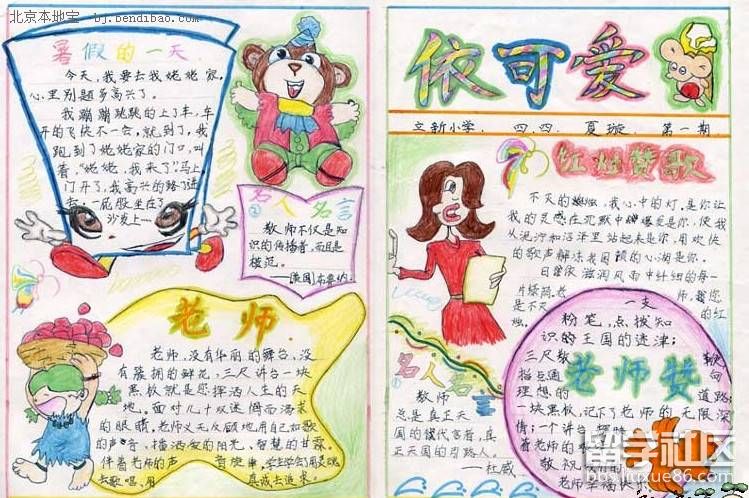 北京本地宝 - bj.bendibao.com
暑假的一天
今天，我要去我姥姥家，
心里别提多高兴了。
我蹦蹦跳跳的上了车，车
开的飞快不一会，就到了，我
跑到了姥姥家的门口，叫
着，"姥姥，我来了"马上，
门开了，我高兴的跨了进
去，一屁股坐在了
沙发上……
名人名言
②
教师不仅是知
识的传播者，而且是
模范。
老师
老师，没有华丽的舞台，没
有簇拥的鲜花，三尺讲台一块
黑板就是您挥洒人生的天
地。面对几十双迷惘而渴求
的眼睛，老师义无反顾地用自己如歌
的声音，播洒爱的阳光、智慧的甘霖。
伴着老师的声
去歌唱、用
真诚去追求。
依可爱
立新小学． 四．四． 夏璇． 第一期
红烛赞歌
不灭的蜡烛，我心中的灯，是你让
我的灵感在沉默中爆发是你，使我
从泥泞和沼泽里站起来是你，用欢快
的歌声解冻我困顿的心涧是你。
日曾依滋润风雨中纤细的每一
片绿荫．老
师，我您
是不灭
一支
的红
烛。
粉笔，点拨知
识的王国的迷津；
三尺教
鞭
指点通
向
理想的
道路；
一块黑板，记下了老师的无限深
情；一个讲台，辉映
老师赞
名人名言
①
教师
总是真正天
国的代言者，真
正天国的引路人。
——杜威
留学社区
liuxue86.com